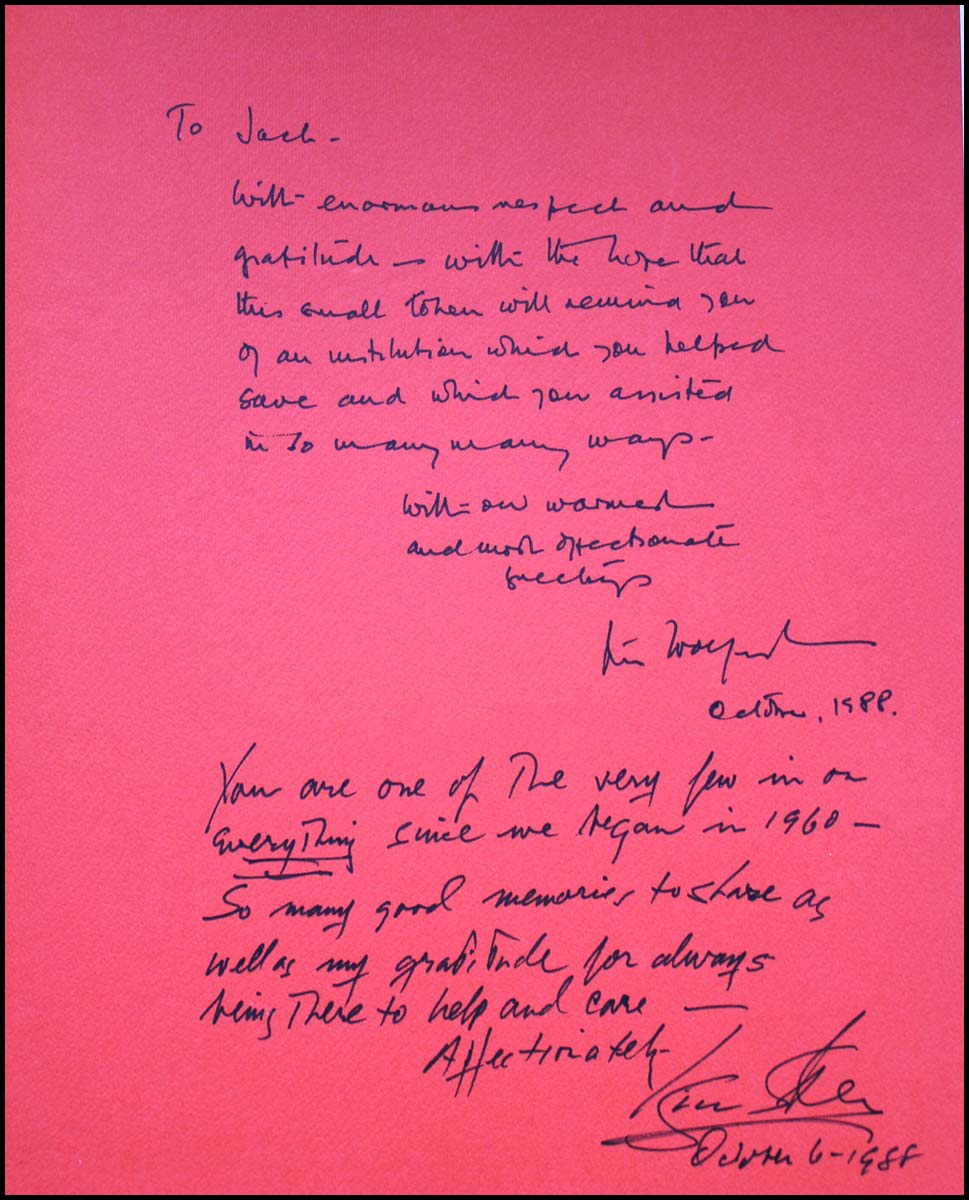 To Jack -
With enormous respect and
gratitude - with the hope that
this small token will remind you
of an institution which you helped
save and which you assisted
in so many many ways -
With our warmest
and most affectionate
greetings
October, 1988.
You are one of The very few in on
everything since we began in 1960 -
So many good memories to share as
well as my gratitude for always
being There to help and care -
Affectionately
October 6-1988